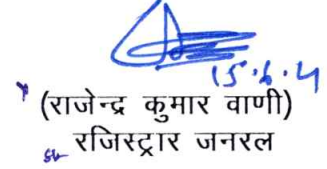 15.6.21
(राजेन्द्र कुमार वाणी)
रजिस्ट्रार जनरल